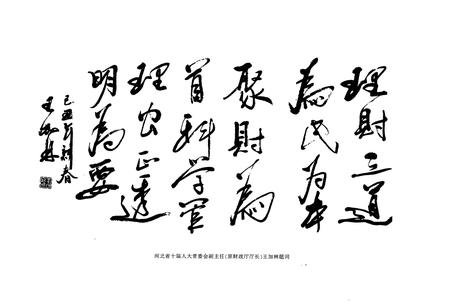 理財之道
為民为本
聚財為
首科学管
理公正透
明為要
己丑年春
王加林
河北省十届人大常委会副主任(原财政厅厅长)王加林题词